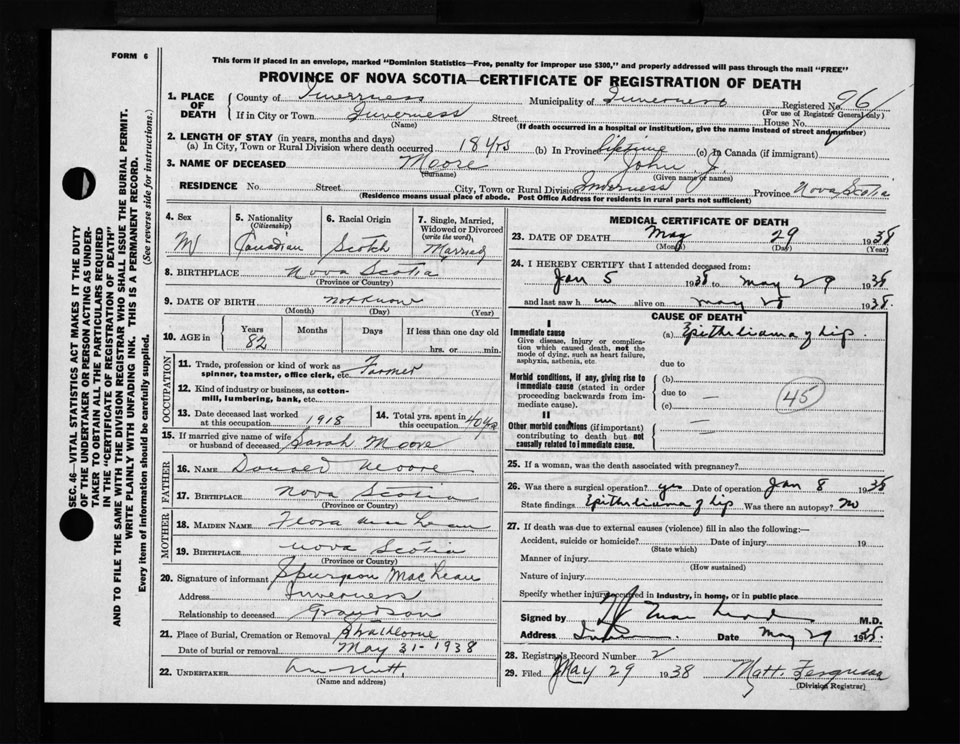 FORM 6
This form if placed in an envelope, marked "Dominion Statistics—Free, penalty for improper use $300," and properly addressed will pass through the mail "FREE"
PROVINCE OF NOVA SCOTIA—CERTIFICATE OF REGISTRATION OF DEATH
1. PLACE OF DEATH County of Inverness Municipality of Inverness Registered No. 961
(For use of Registrar General only)
If in City or Town Inverness Street House No.
(Name) (If death occurred in a hospital or institution, give the name instead of street and number)
2. LENGTH OF STAY (in years, months and days)
(a) In City, Town or Rural Division where death occurred 18 yrs (b) In Province lifetime (c) In Canada (if immigrant)
3. NAME OF DECEASED Moore John J.
(Surname) (Given name or names)
RESIDENCE No. Street City, Town or Rural Division Inverness Province Nova Scotia
(Residence means usual place of abode. Post Office Address for residents in rural parts not sufficient)
4. Sex 5. Nationality (Citizenship) 6. Racial Origin 7. Single, Married, Widowed or Divorced (write the word)
M Canadian Scotch Married
8. BIRTHPLACE Nova Scotia
(Province or Country)
9. DATE OF BIRTH not know
(Month) (Day) (Year)
10. AGE in Years Months Days If less than one day old
82 hrs. or min.
OCCUPATION
11. Trade, profession or kind of work as spinner, teamster, office clerk, etc. Farmer
12. Kind of industry or business, as cotton-mill, lumbering, bank, etc.
13. Date deceased last worked at this occupation 1918 14. Total yrs. spent in this occupation 40 yrs
15. If married give name of wife or husband of deceased Sarah Moore
FATHER
16. NAME Donald Moore
17. BIRTHPLACE Nova Scotia
(Province or Country)
MOTHER
18. MAIDEN NAME Flora Mac Lean
19. BIRTHPLACE Nova Scotia
(Province or Country)
20. Signature of informant Spurgeon MacLean
Address Inverness
Relationship to deceased Grandson
21. Place of Burial, Cremation or Removal Strathlorne
Date of burial or removal May 31-1938
22. UNDERTAKER
(Name and address)
MEDICAL CERTIFICATE OF DEATH
23. DATE OF DEATH May 29 1938
(Month) (Day) (Year)
24. I HEREBY CERTIFY that I attended deceased from:
Jan 5 1938 to May 29 1938
and last saw h im alive on May 28 1938.
CAUSE OF DEATH
I
Immediate cause (a) Epithelioma of lip.
Give disease, injury or complication which caused death, not the mode of dying, such as heart failure, asphyxia, asthenia, etc.
due to
Morbid conditions, if any, giving rise to immediate cause (stated in order proceeding backwards from immediate cause).
(b)
due to
(c)
45
II
Other morbid conditions (if important) contributing to death but not causally related to immediate cause.
25. If a woman, was the death associated with pregnancy?
26. Was there a surgical operation? yes Date of operation Jan 8 1938
State findings Epithelioma of lip Was there an autopsy? no
27. If death was due to external causes (violence) fill in also the following:—
Accident, suicide or homicide? Date of injury 19
(State which)
Manner of injury
(How sustained)
Nature of injury
Specify whether injury occurred in industry, in home, or in public place
Signed by M.D.
Address Date May 29 1938.
28. Registrar's Record Number 2
29. Filed May 29 1938 Matt. Ferguson
(Division Registrar)
SEC. 46—VITAL STATISTICS ACT MAKES IT THE DUTY
OF THE UNDERTAKER OR PERSON ACTING AS UNDER-
TAKER TO OBTAIN ALL THE PARTICULARS REQUIRED
IN THE "CERTIFICATE OF REGISTRATION OF DEATH"
AND TO FILE THE SAME WITH THE DIVISION REGISTRAR WHO SHALL ISSUE THE BURIAL PERMIT.
WRITE PLAINLY WITH UNFADING INK. THIS IS A PERMANENT RECORD.
Every item of information should be carefully supplied. (See reverse side for instructions.)